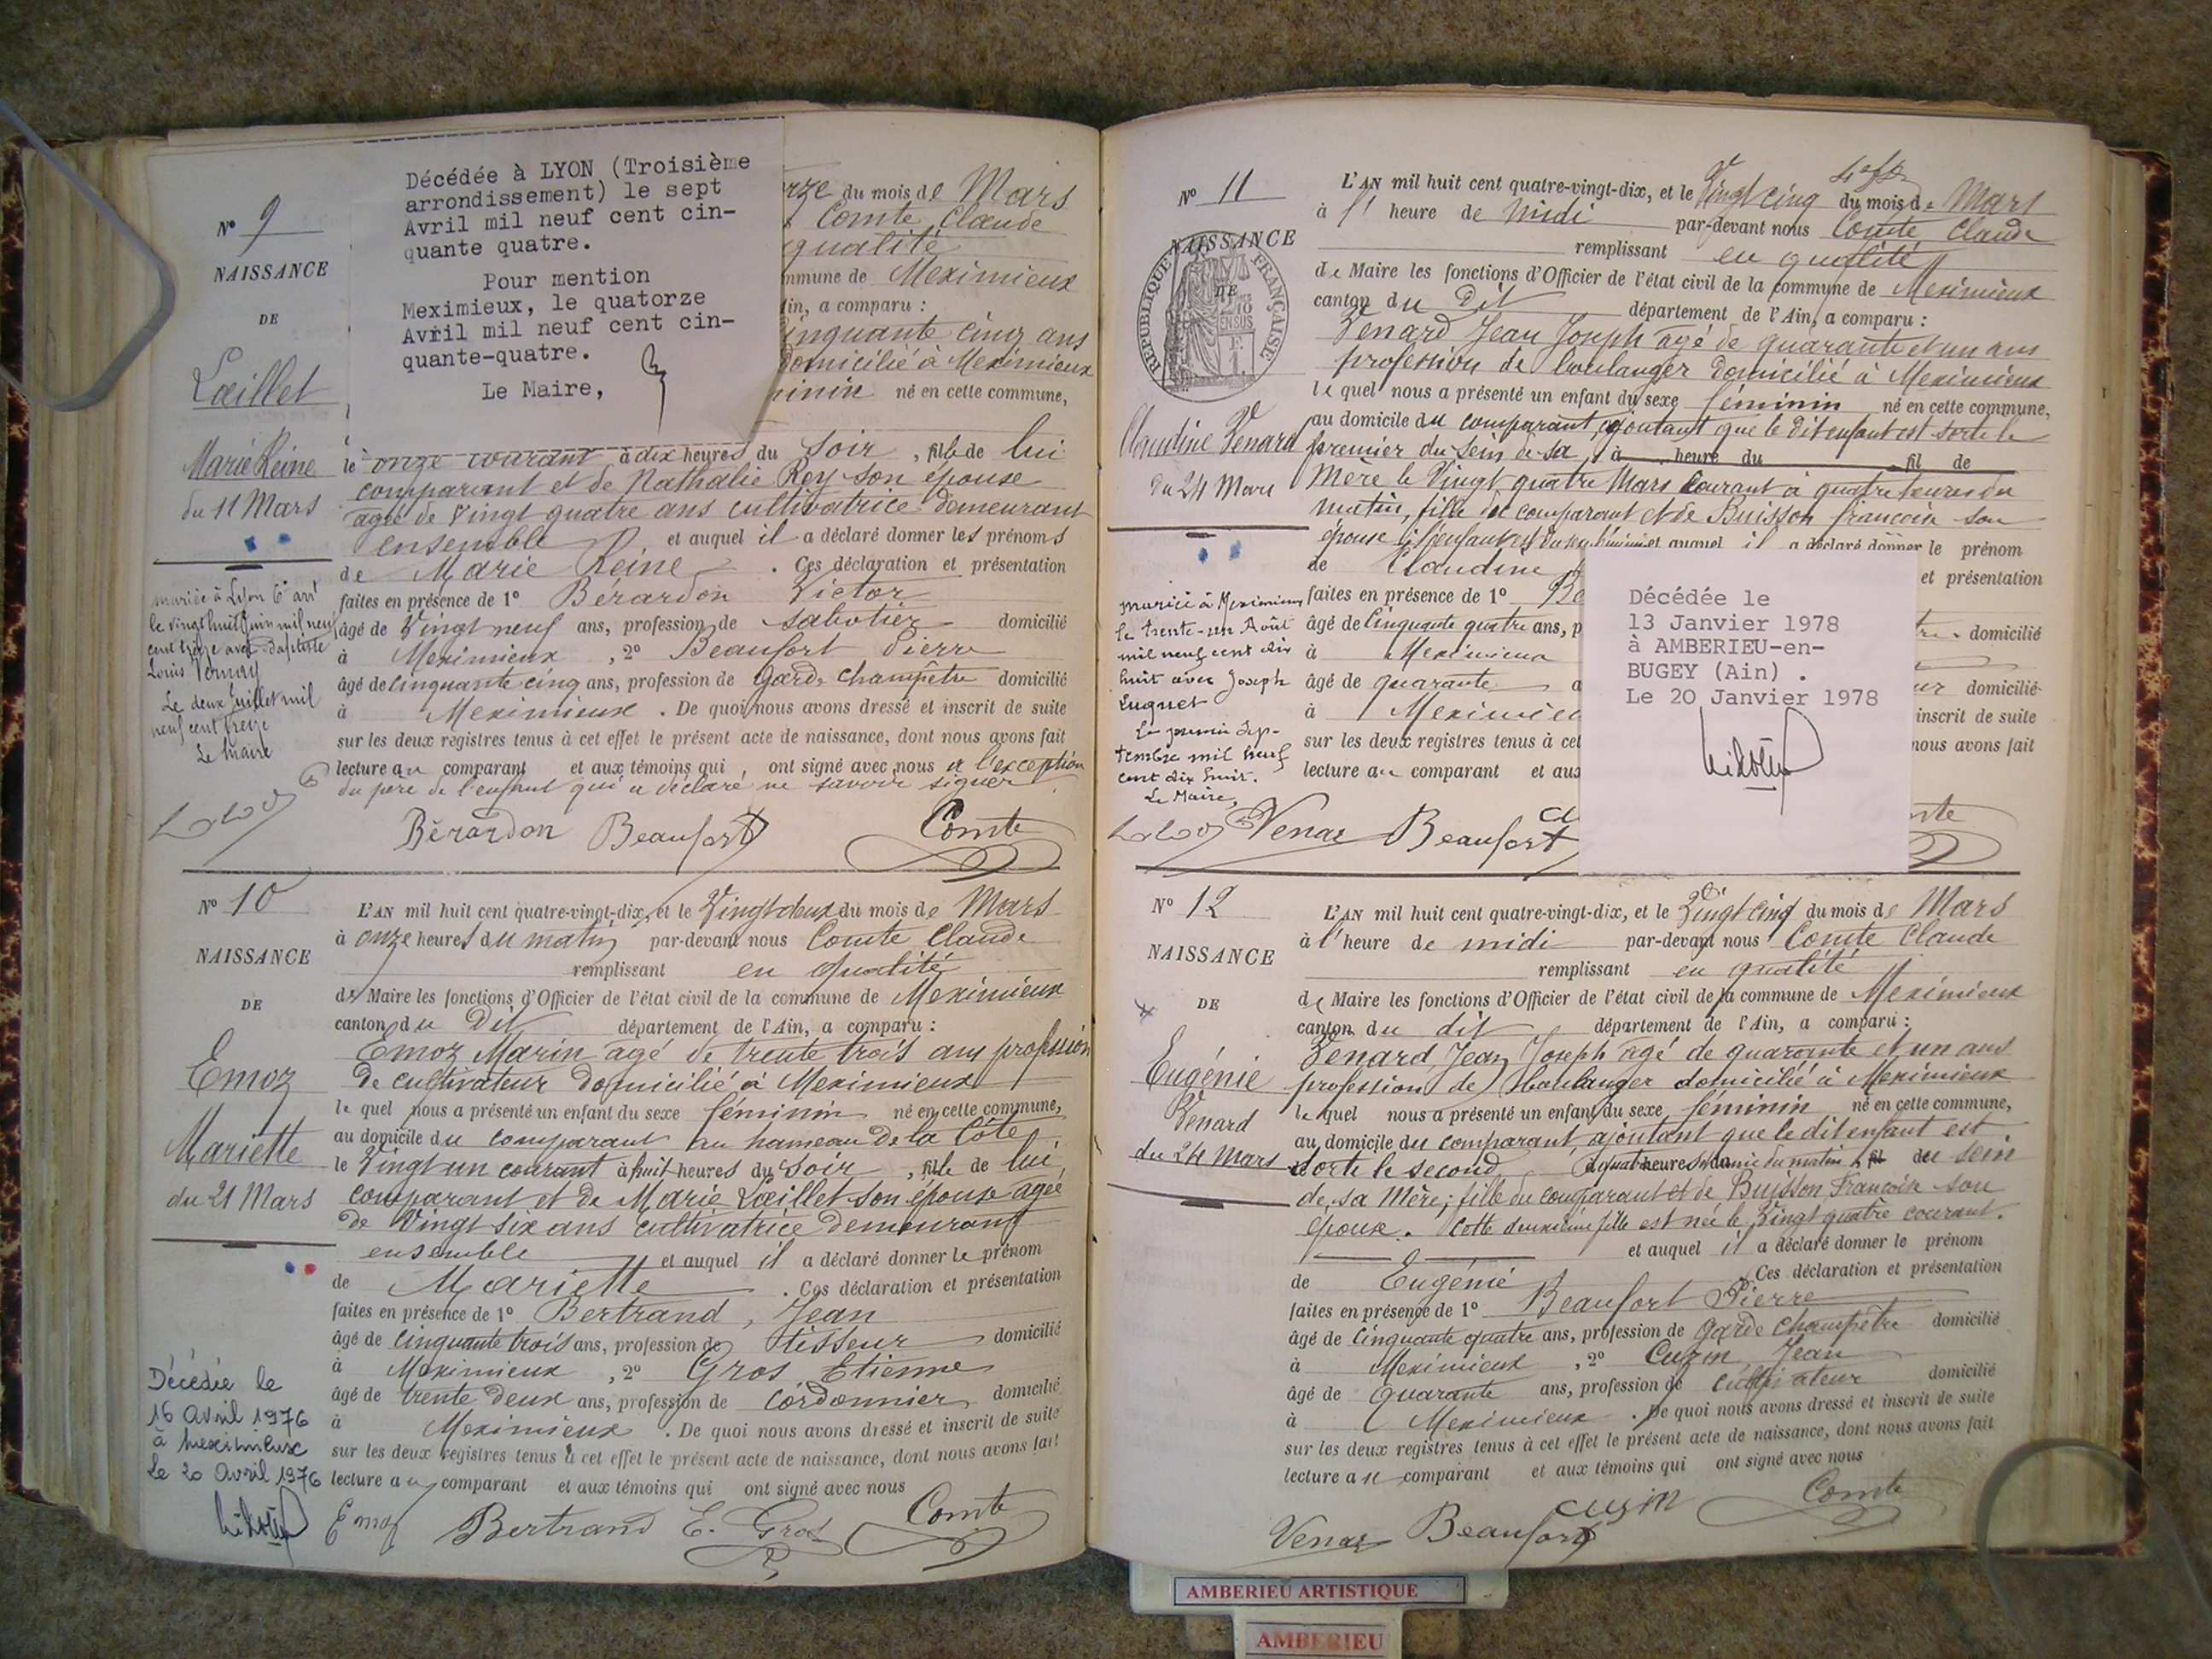 Nº 9
NAISSANCE
DE
Lœillet
Marie Reine
du 11 Mars
mariée à Lyon 6e arrt
le vingt huit Juin mil neuf
cent treize avec Baptiste
Louis
Le deux Juillet mil
neuf cent treize
Le Maire
Décédée à LYON (Troisième
arrondissement) le sept
Avril mil neuf cent cin-
quante quatre.
Pour mention
Meximieux, le quatorze
Avril mil neuf cent cin-
quante-quatre.
Le Maire,
rze du mois de Mars
Comte Claude
qualité
mmune de Meximieux
in, a comparu :
inquante cinq ans
domicilié à Meximieux
minin né en cette commune,
le onze courant à dix heures du soir, fille de lui
comparant et de Nathalie Rey son épouse
agée de Vingt quatre ans cultivatrice demeurant
ensemble et auquel il a déclaré donner les prénoms
de Marie Reine . Ces déclaration et présentation
faites en présence de 1º Berardon Victor
âgé de Vingt neuf ans, profession de sabotier domicilié
à Meximieux , 2º Beaufort Pierre
âgé de Cinquante cinq ans, profession de Garde Champêtre domicilié
à Meximieux . De quoi nous avons dressé et inscrit de suite
sur les deux registres tenus à cet effet le présent acte de naissance, dont nous avons fait
lecture au comparant et aux témoins qui ont signé avec nous à l'exception
du père de l'enfant qui a déclaré ne savoir signer
Bérardon Beaufort Comte
Nº 10
NAISSANCE
DE
Emoz
Mariette
du 21 Mars
Décédée le
16 Avril 1976
à Meximieux
Le 20 Avril 1976
L'AN mil huit cent quatre-vingt-dix, et le Vingt deux du mois de Mars
à onze heures du matin par-devant nous Comte Claude
remplissant en qualité
de Maire les fonctions d'Officier de l'état civil de la commune de Meximieux
canton du Dit département de l'Ain, a comparu :
Emoz Marin agé de trente trois ans profession
de cultivateur domicilié à Meximieux
le quel nous a présenté un enfant du sexe féminin né en cette commune,
au domicile du comparant au hameau de la Côte
le Vingt un courant à huit heures du Soir , fille de lui
comparant et de Marie Lœillet son épouse agée
de Vingt six ans cultivatrice demeurant
ensemble et auquel il a déclaré donner le prénom
de Mariette . Ces déclaration et présentation
faites en présence de 1º Bertrand, Jean
âgé de cinquante trois ans, profession de tisseur domicilié
à Meximieux , 2º Gros Etienne
âgé de trente deux ans, profession de Cordonnier domicilié
à Meximieux . De quoi nous avons dressé et inscrit de suite
sur les deux registres tenus à cet effet le présent acte de naissance, dont nous avons fait
lecture au comparant et aux témoins qui ont signé avec nous
Emoz Bertrand E. Gros Comte
Nº 11
NAISSANCE
DE
REPUBLIQUE FRANÇAISE
EN SUS
Claudine Venard
du 24 Mars
mariée à Meximieux
le trente-un Août
mil neuf cent dix
huit avec Joseph
Luquet
Le premier Sep-
tembre mil neuf
cent dix huit.
Le Maire,
L'AN mil huit cent quatre-vingt-dix, et le Vingt cinq du mois de Mars
à l' heure de midi par-devant nous Comte Claude
remplissant en qualité
de Maire les fonctions d'Officier de l'état civil de la commune de Meximieux
canton du Dit département de l'Ain, a comparu :
Venard Jean Joseph agé de quarante et un ans
profession de boulanger domicilié à Meximieux
le quel nous a présenté un enfant du sexe féminin né en cette commune,
au domicile du comparant, ajoutant que le dit enfant est sorti le
premier du sein de sa , à heure du fil de
Mère le Vingt quatre Mars courant à quatre heures du
matin, fille du comparant et de Buisson Françoise son
épouse et auquel il a déclaré donner le prénom
de Claudine et présentation
faites en présence de 1º
âgé de Cinquante quatre ans, p domicilié
à Meximieux
âgé de quarante a domicilié
à Meximieu inscrit de suite
sur les deux registres tenus à cet nous avons fait
lecture au comparant et aux
Venar Beaufort
Décédée le
13 Janvier 1978
à AMBERIEU-en-
BUGEY (Ain) .
Le 20 Janvier 1978
Nº 12
NAISSANCE
DE
Eugénie
Venard
du 24 Mars
L'AN mil huit cent quatre-vingt-dix, et le Vingt cinq du mois de Mars
à l'heure de midi par-devant nous Comte Claude
remplissant en qualité
de Maire les fonctions d'Officier de l'état civil de la commune de Meximieux
canton du dit département de l'Ain, a comparu :
Venard Jean Joseph agé de quarante et un ans
profession de boulanger domicilié à Meximieux
le quel nous a présenté un enfant du sexe féminin né en cette commune,
au domicile du comparant, ajoutant que le dit enfant est
sorti le second à quatre heures du matin fil du sein
de sa Mère ; fille du comparant et de Buisson Françoise son
épouse. Cette deuxième fille est née le Vingt quatre courant.
et auquel il a déclaré donner le prénom
de Eugénie Ces déclaration et présentation
faites en présence de 1º Beaufort Pierre
âgé de Cinquante quatre ans, profession de garde champêtre domicilié
à Meximieux , 2º Cuzin Jean
âgé de Quarante ans, profession de cultivateur domicilié
à Meximieux . De quoi nous avons dressé et inscrit de suite
sur les deux registres tenus à cet effet le présent acte de naissance, dont nous avons fait
lecture au comparant et aux témoins qui ont signé avec nous
Venar Beaufort Cuzin Comte
AMBERIEU ARTISTIQUE
AMBERIEU